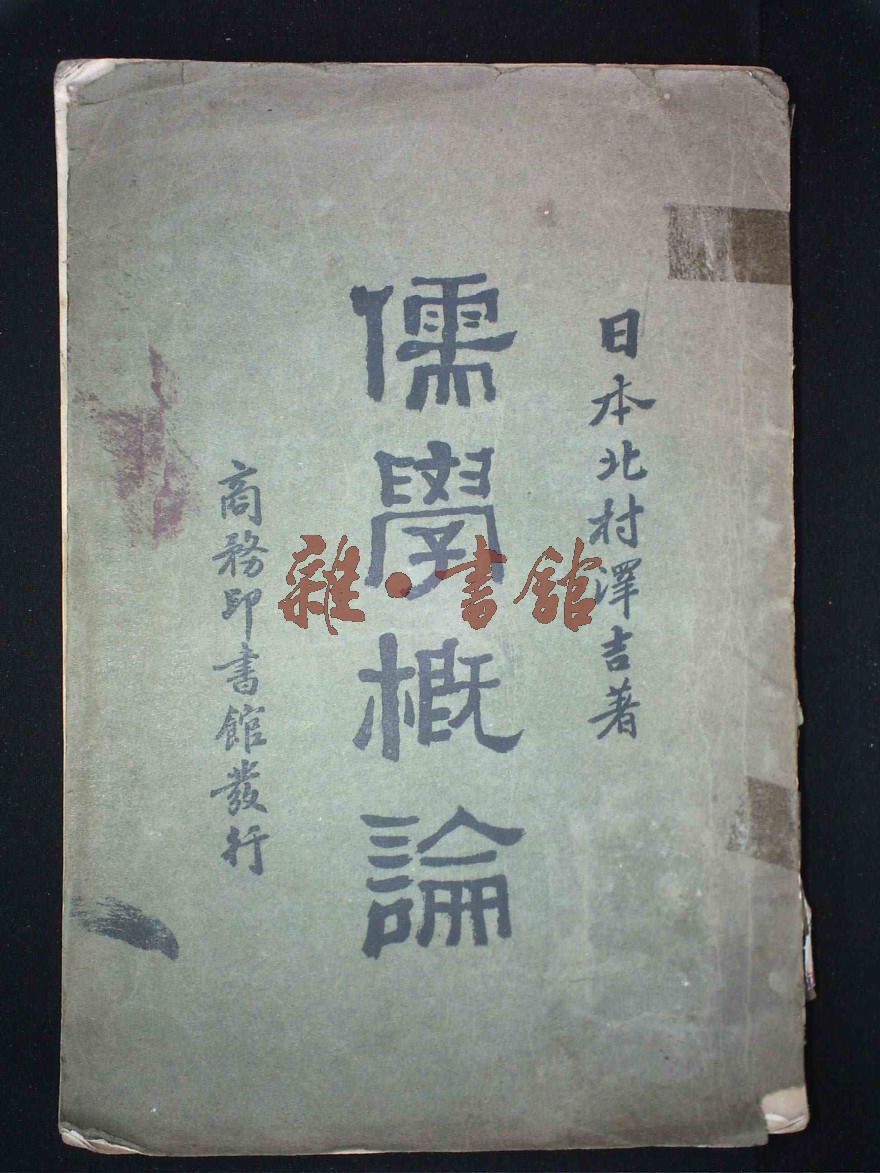 日本北村澤吉著
儒學概論
商務印書館發行
雜·書館